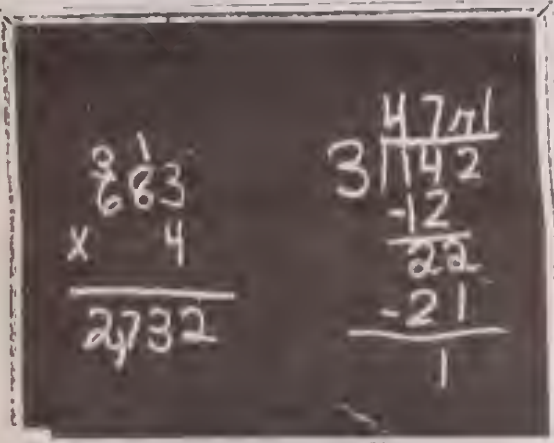 3 1
683
x 4
2,732
47r1
3 142
-12
22
-21
1